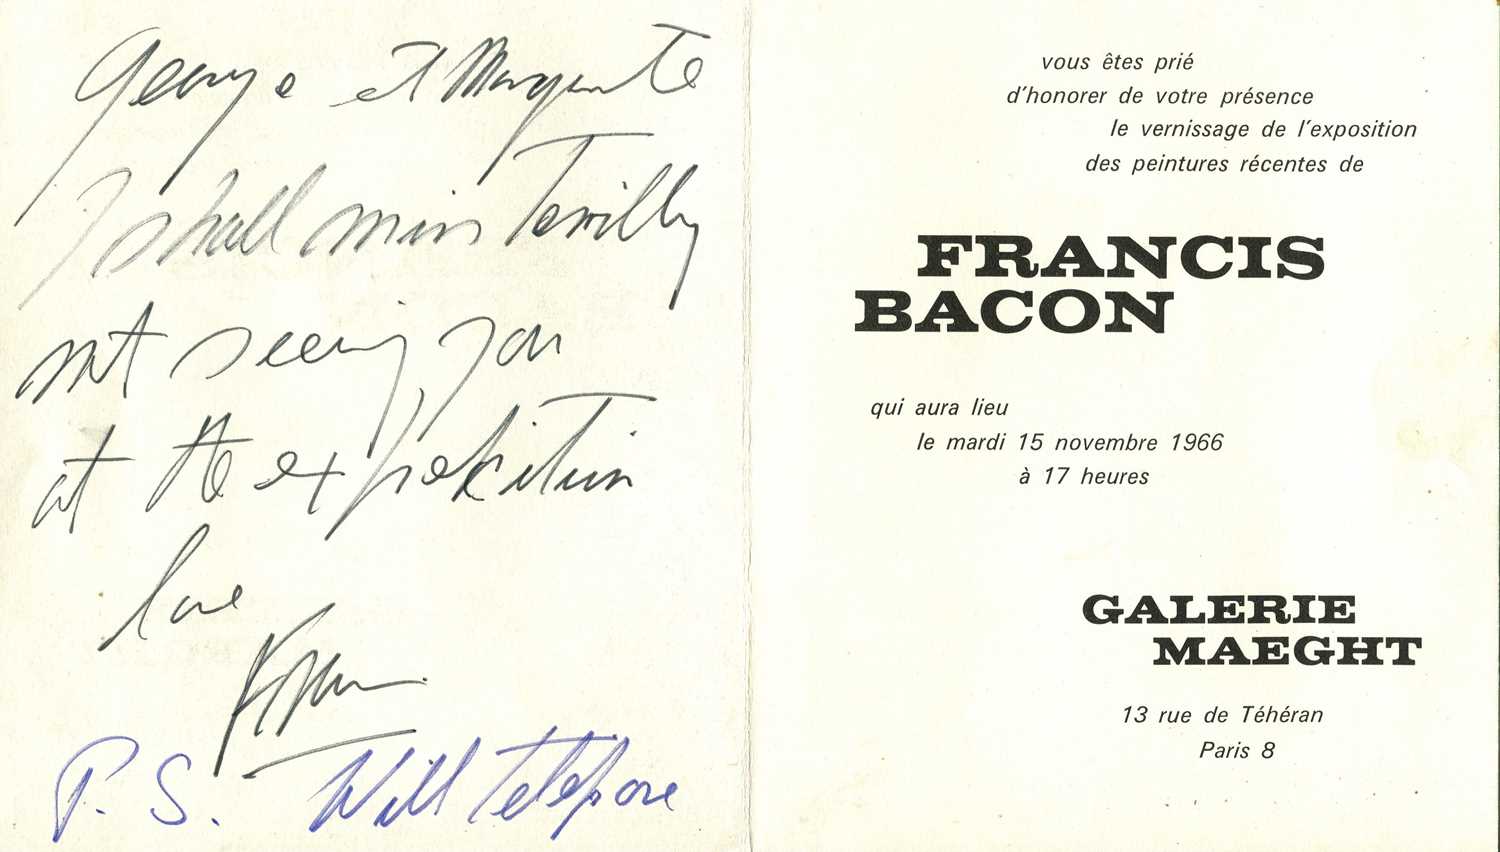 George et Marguerite
I shall miss terribly
not seeing you
at the exposition
love
P.S. Will telepone
vous êtes prié
d'honorer de votre présence
le vernissage de l'exposition
des peintures récentes de
FRANCIS
BACON
qui aura lieu
le mardi 15 novembre 1966
à 17 heures
GALERIE
MAEGHT
13 rue de Téhéran
Paris 8